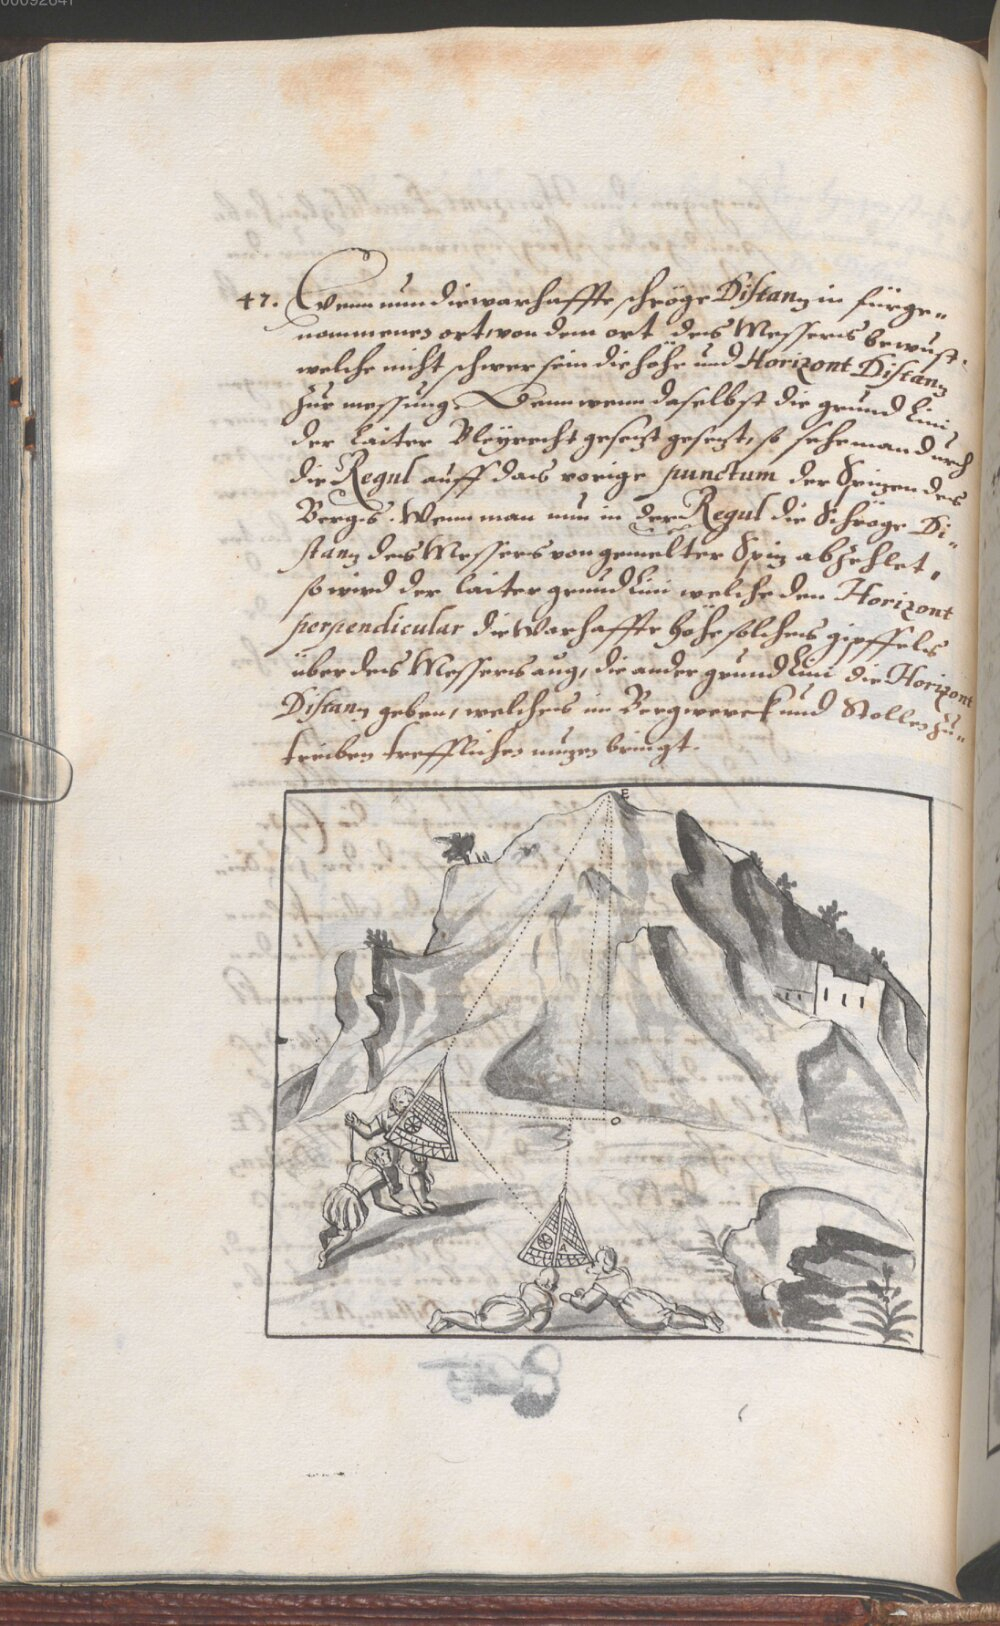 00092647
47. Wenn nun die warhaffte schröge Distanz in fürge=
nommenen ort von dem ort des Messers bewust.
welche nicht schwer sein die höhe und Horizont Distanz
zur messung. Dann wenn daselbst die grund Lini,
der laiter Bleyrecht gesezt gesezt, so sehe man durch
die Regul auff das vorige punctum der Spizen des
Bergs. Wenn man nun in der Regul die Schröge Di=
stanz des Messers von gemelter Spiz abzehlet,
so wird der laiter grund Lini welche den Horizont
perpendicular die Warhaffte höhe solches gipffels
über des Messers aug, die ander grund Lini die Horizont
Distanz geben, welches im Bergwerck und Stollen zu=
treiben trefflichen nuzen bringt.
E
O
A